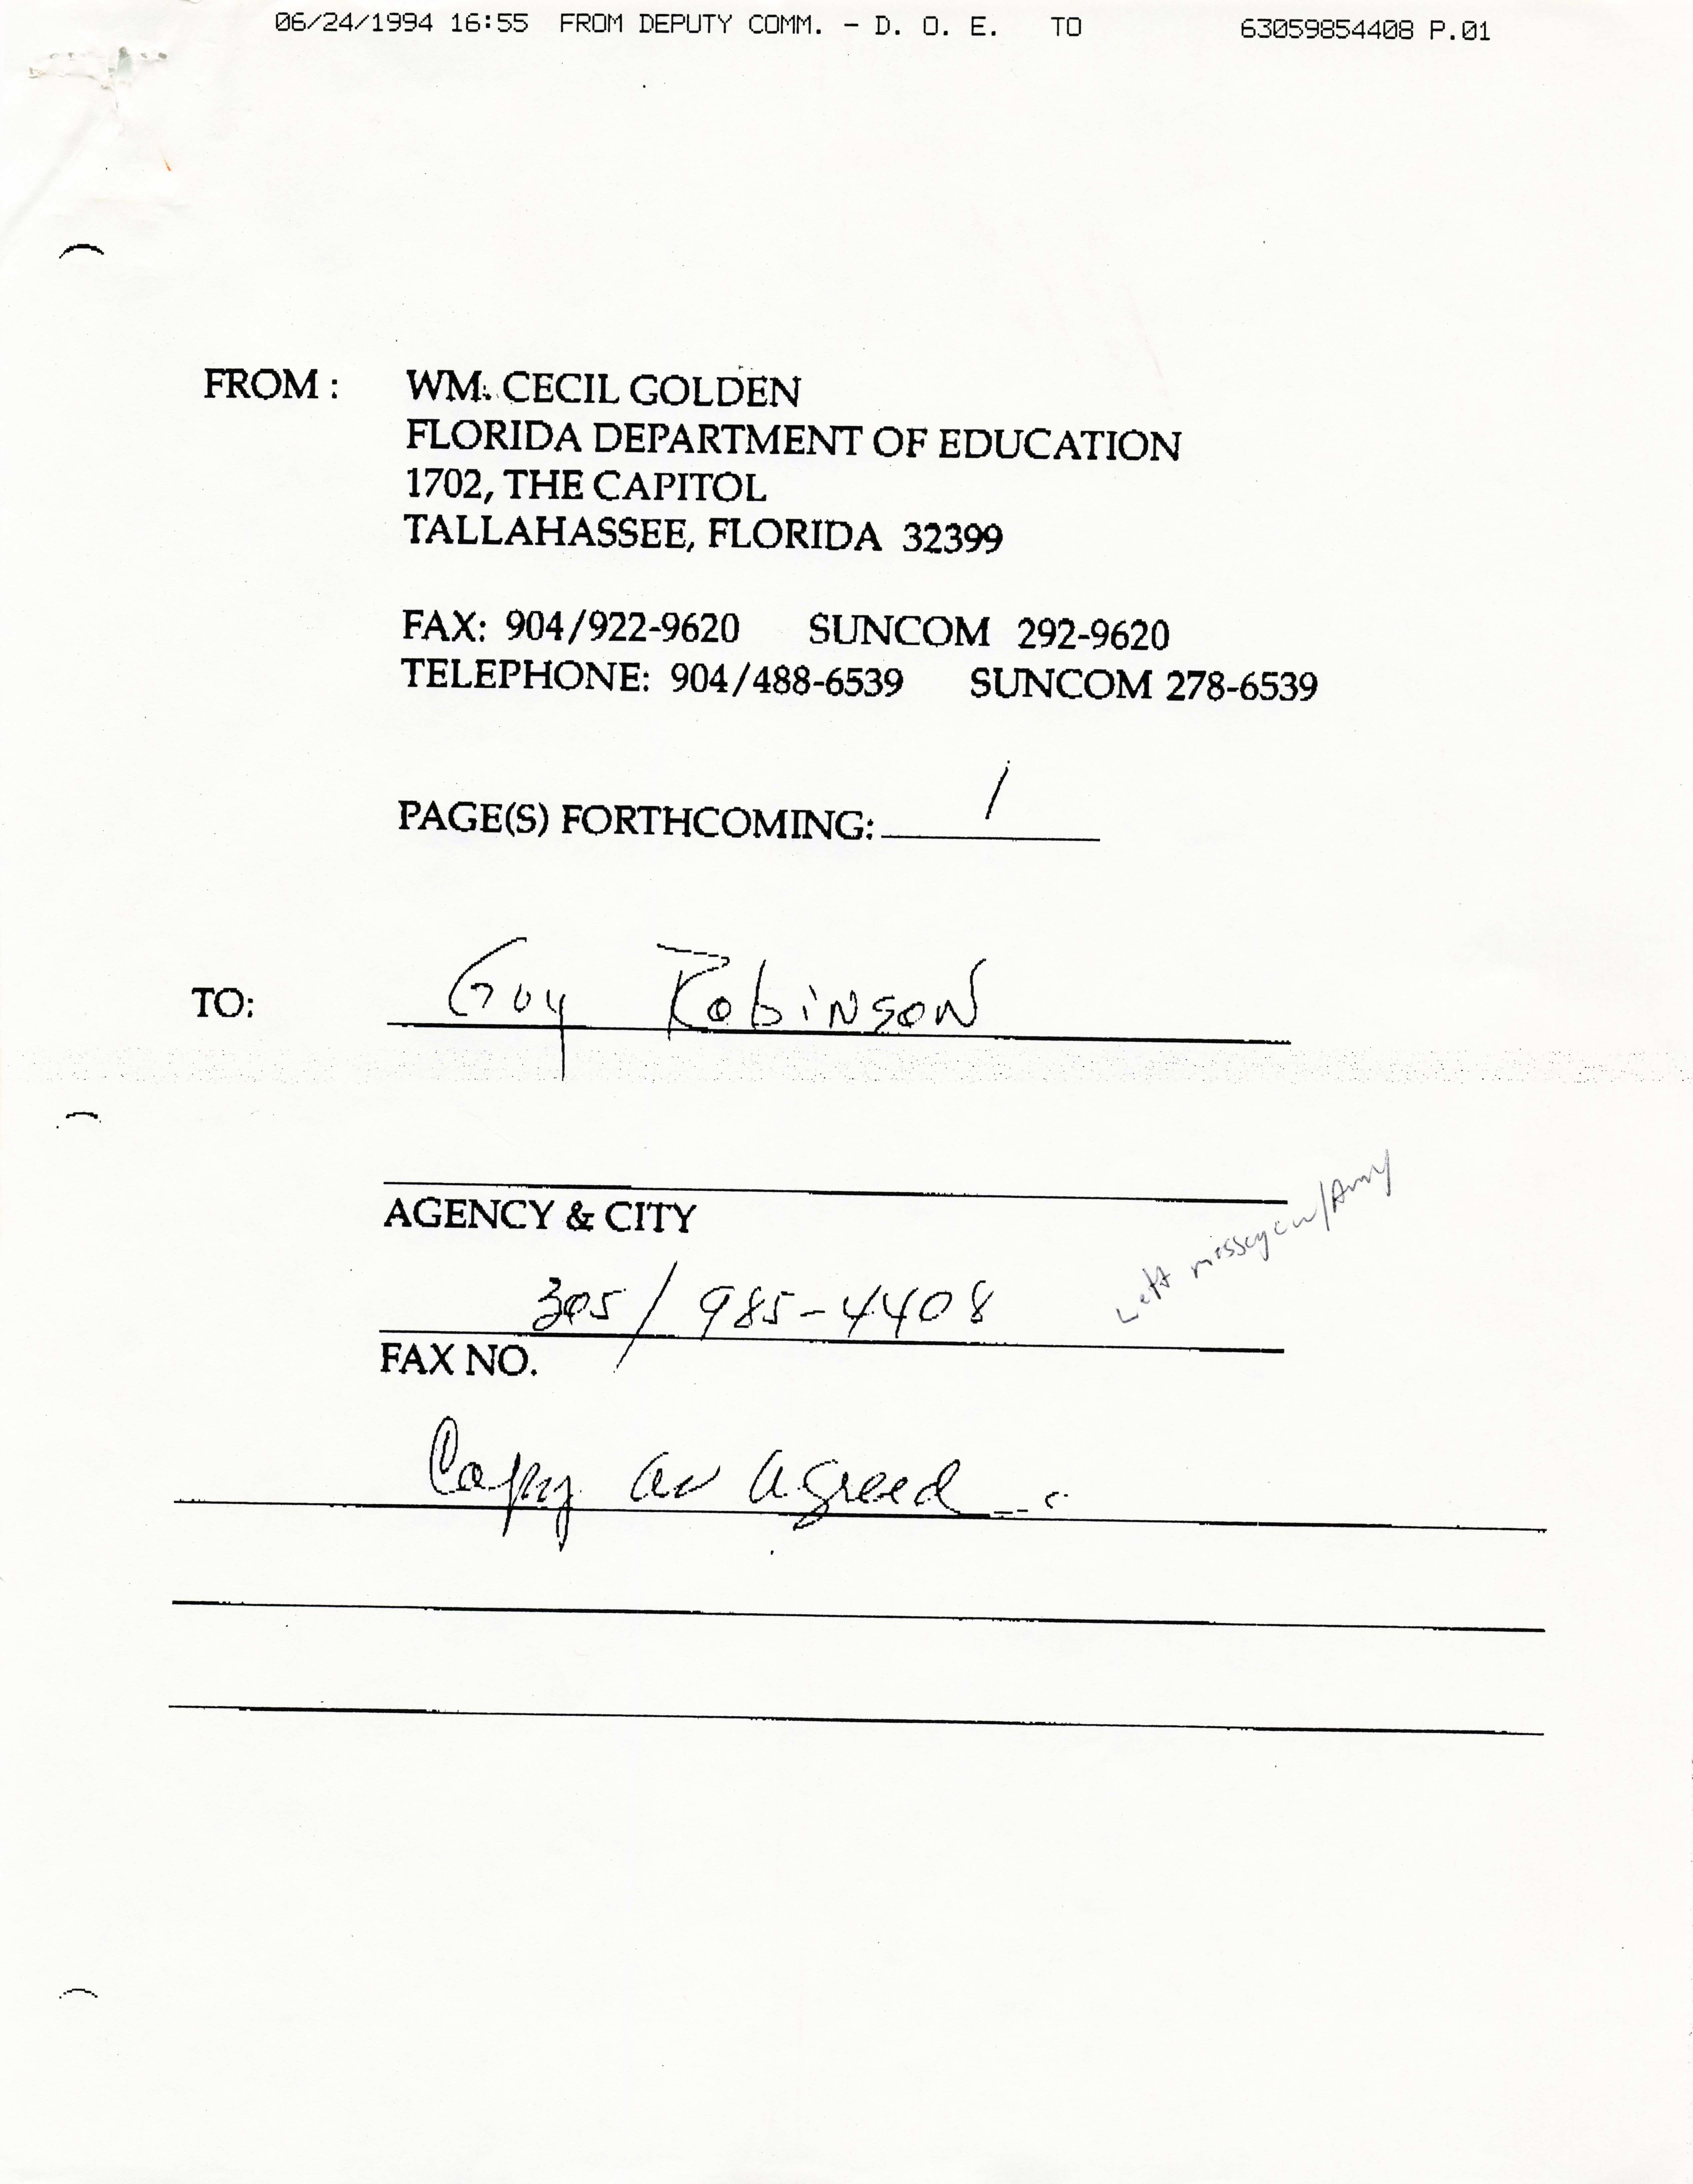 06/24/1994 16:55 FROM DEPUTY COMM. - D. O. E. TO 63059854408 P.01
FROM : WM. CECIL GOLDEN
FLORIDA DEPARTMENT OF EDUCATION
1702, THE CAPITOL
TALLAHASSEE, FLORIDA 32399
FAX: 904/922-9620 SUNCOM 292-9620
TELEPHONE: 904/488-6539 SUNCOM 278-6539
PAGE(S) FORTHCOMING: 1
TO: Guy Robinson
AGENCY & CITY
Left message w/Amy
305/985-4408
FAX NO.
Copy as agreed